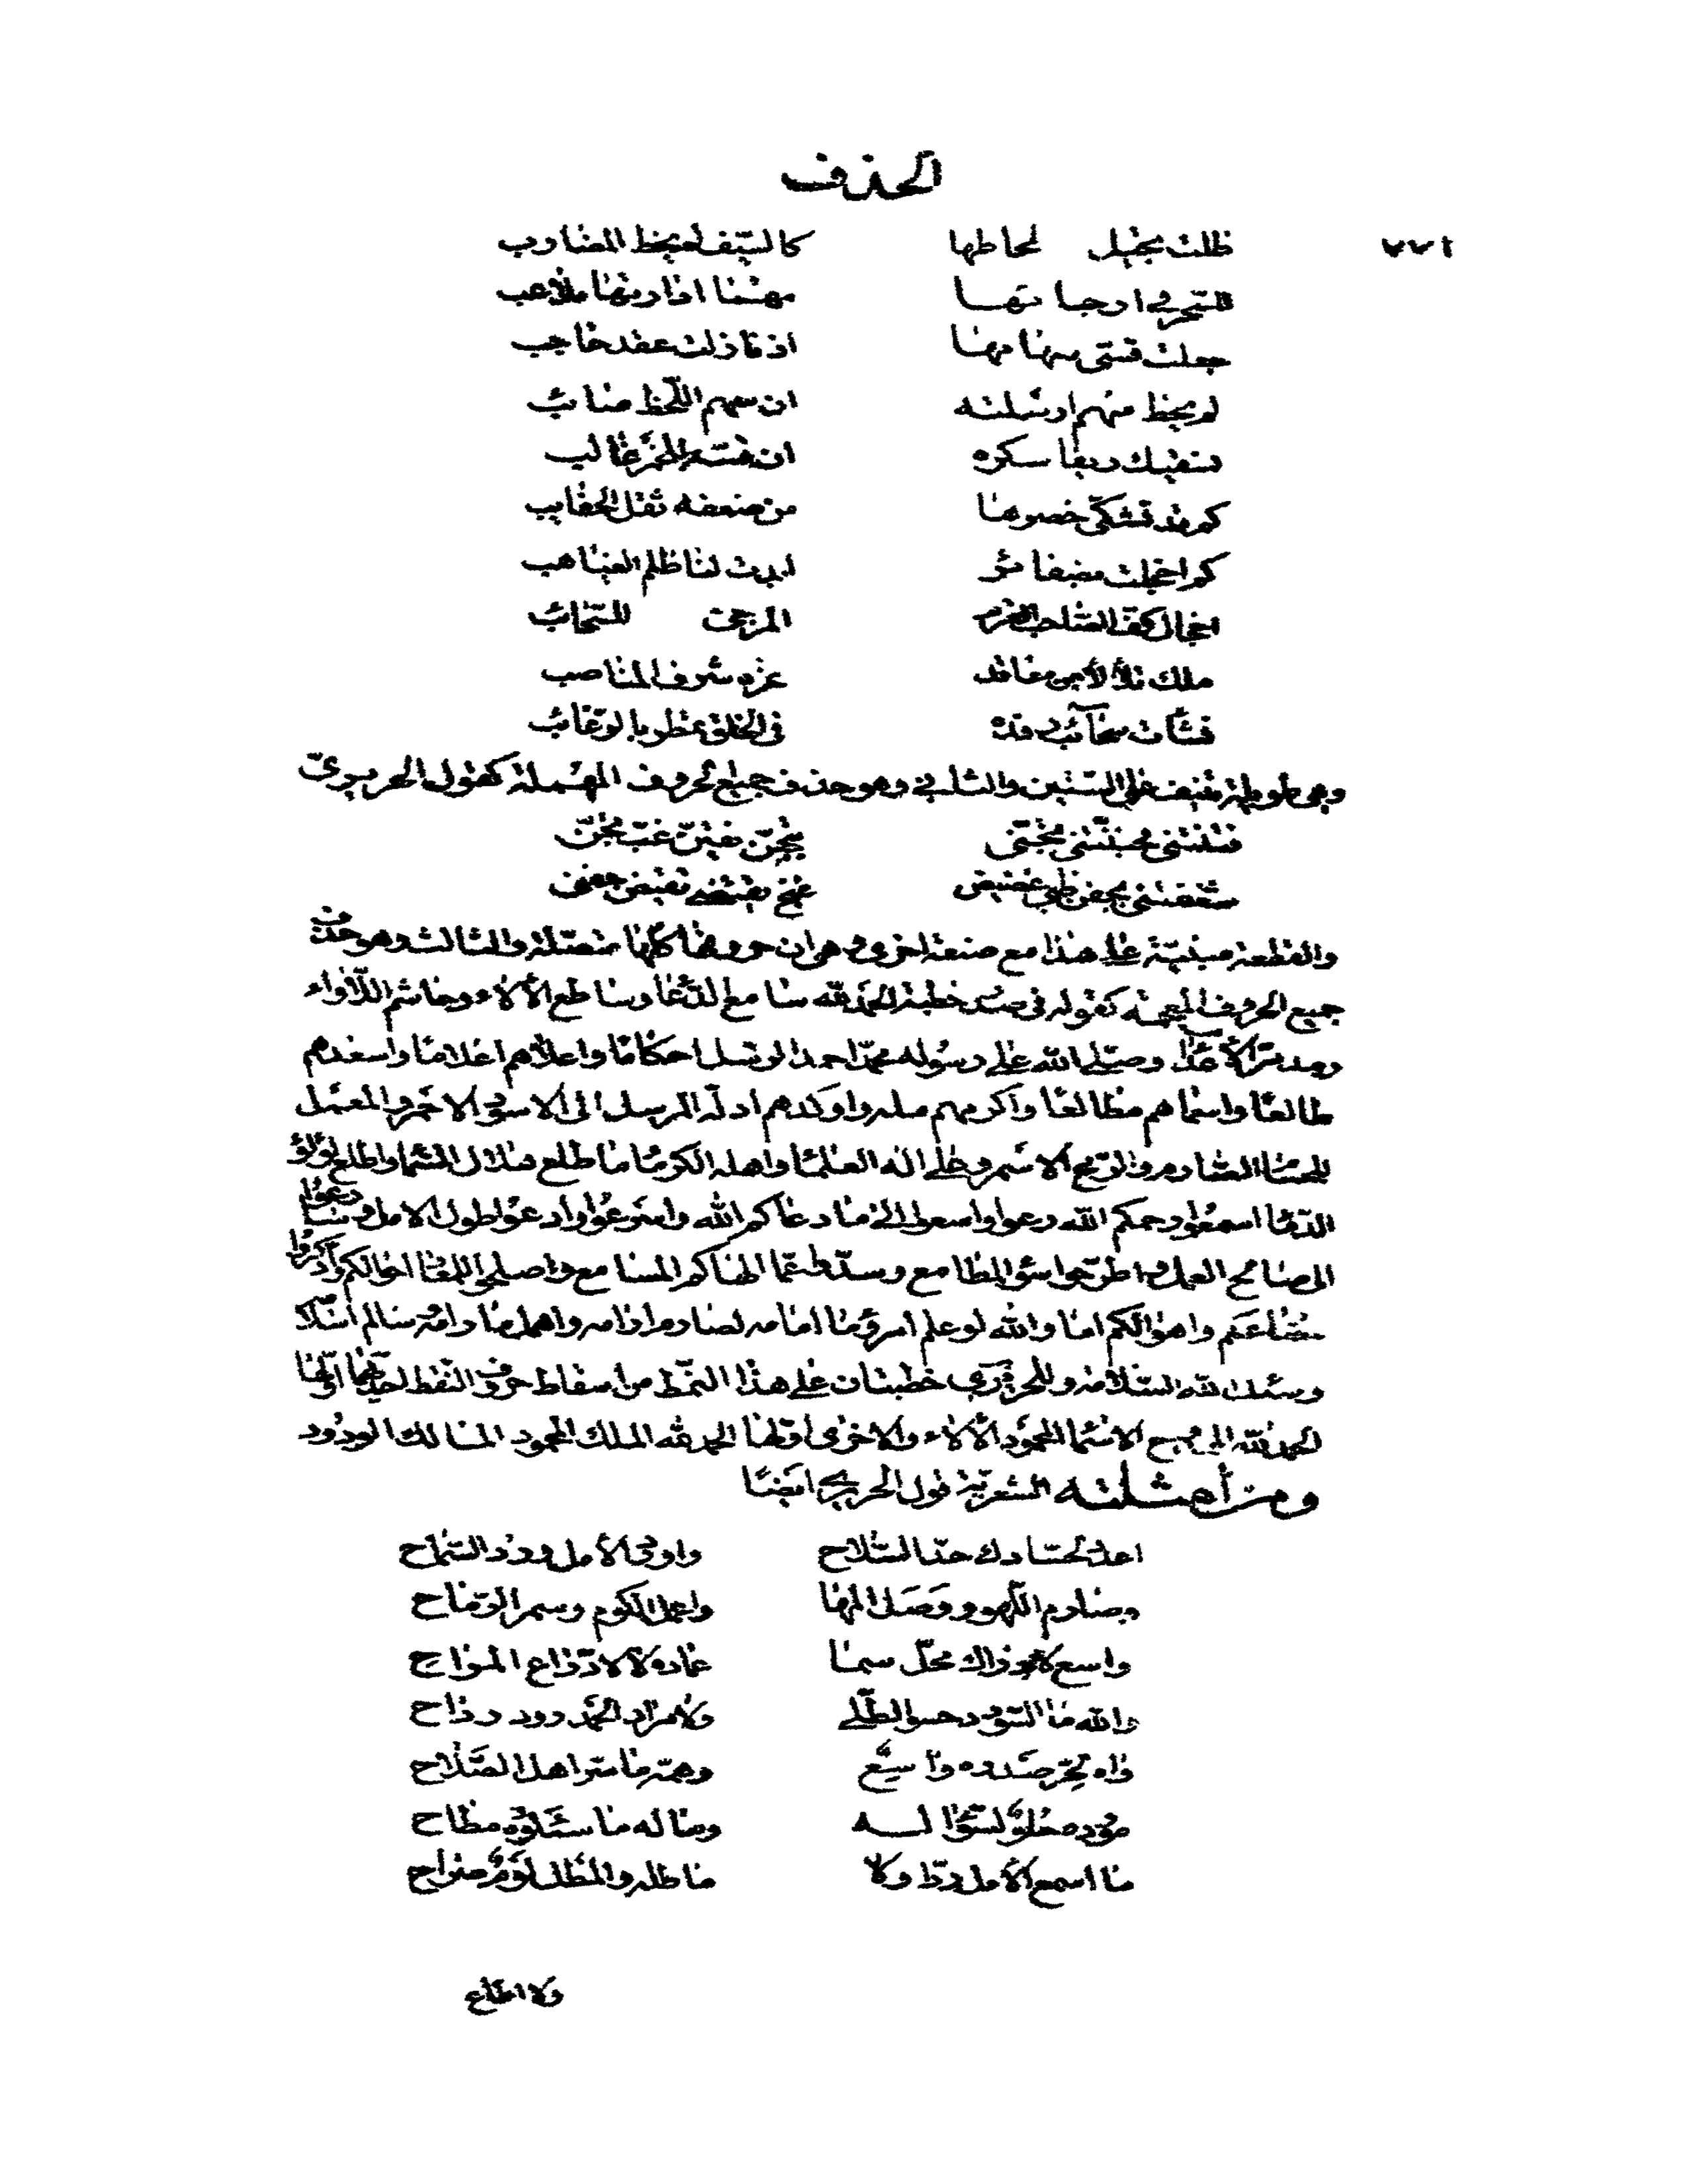 الحذف
٧٧١
ظلت بجفيل لحاظها كالسيف لم يخط المضارب
للسحر في ارجائها مهما اذا رمنها ملاعب
جعلت قسي سهامها ان فاذلت عقد حاجب
لم يخط سهم ارسلته ان سهم اللحظ صائب
تسقيك ريقا سكره ان قسته للخمر غالب
كم قد تشكى خصرها من ضعفه ثقل الحقايب
كم اخجلت ضفائر ابدت لنا ظلم الغياهب
اخجال كف الصالح القرم المزجى للسحائب
ملك تلألأ من معاقد عزه شرف المناصب
فشأت سحائب رفده في الخلق تمطر بالرغائب
وهي طويلة تنيف على الستين والثاني وهو حذف جميع الحروف المهملة كقول الحريري
فتنتني فجننتني تجني بتجن يفتن غب تجن
شغفتني بجفن ظبي غضيض غنج يقتضي تغيض جفني
والقطعة مبنية على هذا مع صنعة اخرى وهي ان حروفها كلها متصلة والثالث وهو حذف
جميع الحروف المعجمة كقوله في صدر خطبة الحمد لله سامع الدعا وساطع الألاء وحاسم اللأواء
ومدمر الأعدا وصلى الله على رسوله محمد احمد الرسل احكاما واعلاهم اعلاما واسعدهم
طالعا واسماهم مطالعا واكرمهم ملة واوكدهم ادلة المرسل الى الاسود والاحمر والمعمل
للحسام الصارم والرمح الاسمر وعلى اله العلما واهله الكرما ما طلع هلال السما واطلع لؤلؤ
الدما اسمعوا رحمكم الله وعوا واسعوا الى ما دعاكم الله واسرعوا وادعوا طول الامل ودعوا
الى صالح العمل واطرحوا سوء المطامع وسدوا عما الهاكم المسامع واصلحوا للمعاد اعمالكم واذكروا
واهوالكم اما والله لو علم امرؤ ما امامه لصارم ارامه واهمل ما رامه سالم اسلا
وسئل الله السلامة وللحريري خطبتان على هذا النمط من اسقاط حروف النقط احديهما اولها
الحمد لله الممدوح الاسما المحمود الألاء والاخرى اولها الحمد لله الملك المحمود المالك الودود
ومن أمثلته الشعرية قول الحريري ايضا
اعدد لحسادك حد السلاح واورد الأمل ورد السماح
وصارم اللهو ووصل المها واعمل الكوم وسمر الرماح
واسع لادراك محل سما عماده لا لادراع المراح
والله ما السودد حسو الطلى ولا مراد الحمد رود رداح
واها لحر صدره واسع وهمه ما سر اهل الصلاح
مورده حلو لسؤاله وماله ما سألوه مطاح
ما اسمع الأمل ردا ولا ماطله والمطل لؤم صراح
ولا اطاع